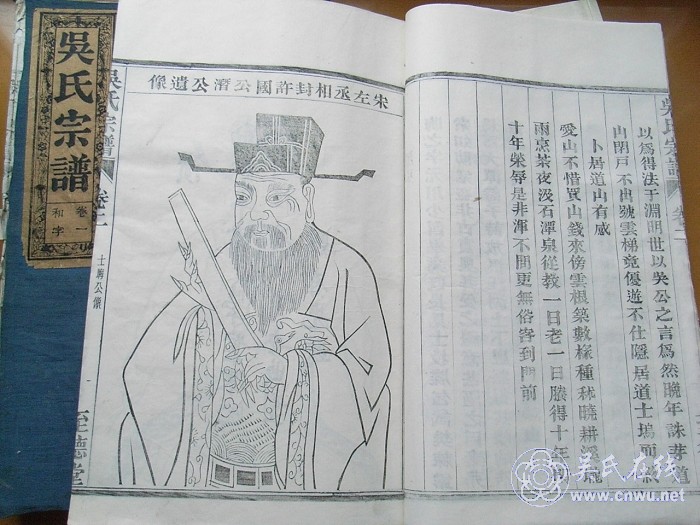 吳氏宗譜
卷一
和字
吳氏宗譜
卷二
士塢公像
至德堂
宋左丞相封許國公潛公遺像
吳氏宗譜
卷二
以爲得法于淵明世以吳公之言爲然晚年誅芽道
山閉戶不出號雲梯竟優遊不仕隱居道士塢而終
卜居道山有感
愛山不惜買山錢來傍雲根築數椽種秫曉耕溪
雨烹茶夜汲石潭泉從教一日老一日賸得十年
十年榮辱是非渾不問更無俗客到門前
吴氏在线
www.cnwu.net